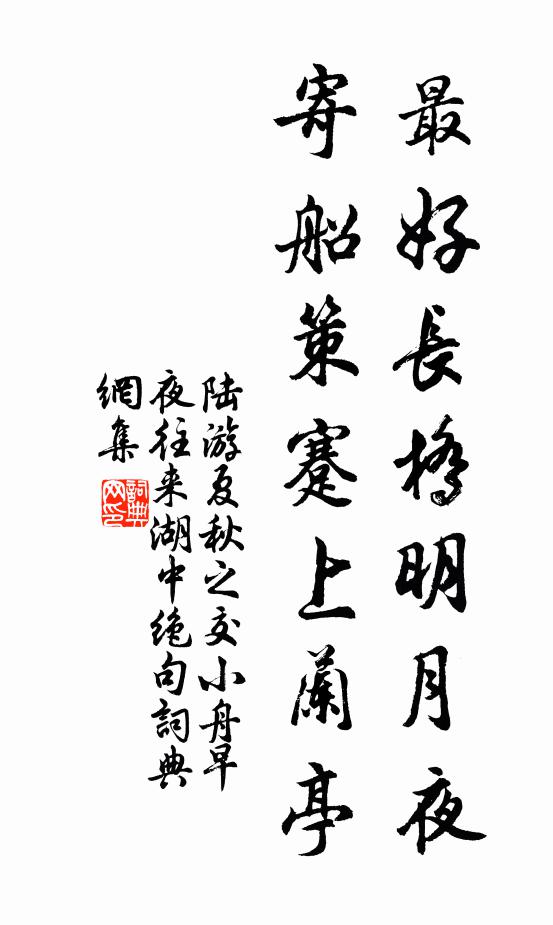 最好長橋明月夜
寄船策蹇上蘭亭
陆游夏秋之交小舟早
夜往来湖中绝句詞典
網集
詞典
网印